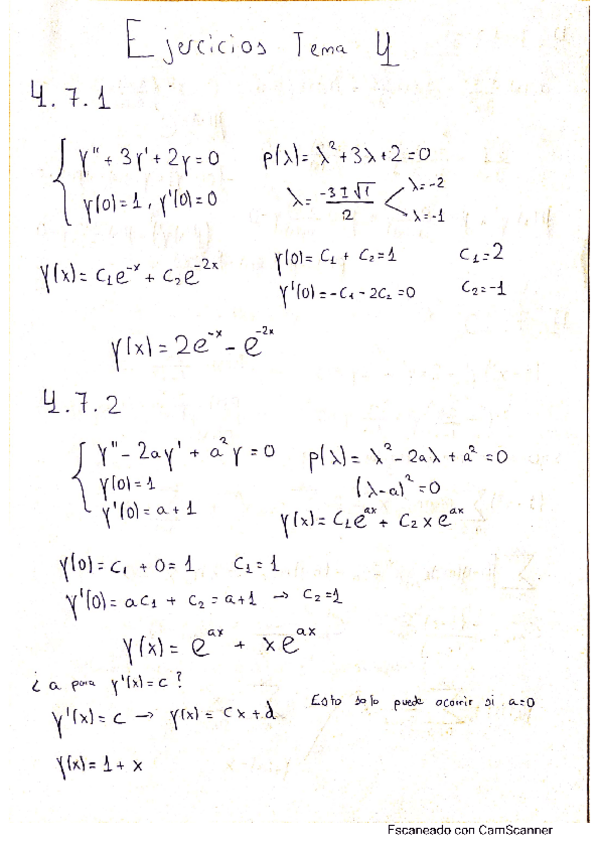 Ejercicios Tema 4
4.7.1
y'' + 3y' + 2y = 0    p(λ) = λ² + 3λ + 2 = 0
y(0) = 1, y'(0) = 0    λ = (-3 ± √1)/2    λ = -2    λ = -1
y(x) = C₁e^{-x} + C₂e^{-2x}    y(0) = C₁ + C₂ = 1    C₁ = 2
y'(0) = -C₁ - 2C₂ = 0    C₂ = -1
y(x) = 2e^{-x} - e^{-2x}
4.7.2
y'' - 2ay' + a²y = 0    p(λ) = λ² - 2aλ + a² = 0
y(0) = 1    (λ-a)² = 0
y'(0) = a + 1    y(x) = C₁e^{ax} + C₂xe^{ax}
y(0) = C₁ + 0 = 1    C₁ = 1
y'(0) = aC₁ + C₂ = a+1 → C₂ = 1
y(x) = e^{ax} + xe^{ax}
¿a para y'(x) = c?
y'(x) = c → y(x) = cx + d    Esto solo puede ocorrir si a=0
y(x) = 1 + x
Escaneado con CamScanner